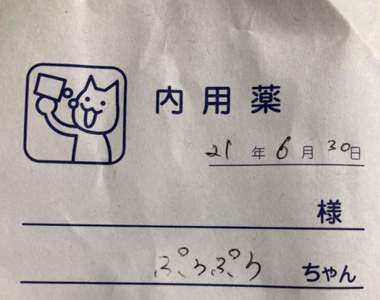 内用薬
21年6月30日
様
ぷらぷら ちゃん